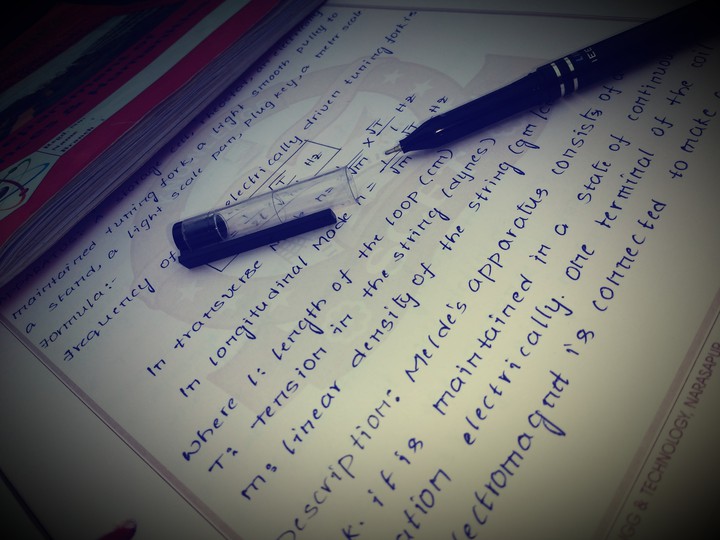 maintained tuning fork, a light smooth pulley to
a stand, a light scale pan, plug key, a meter scale
Formula:-
Frequency of electrically driven tuning fork is
In transverse
In longitudinal Mode
Where l: length of the loop (cm)
T: tension in the string (dynes)
m: linear density of the string (gm/c
Description: Melde's apparatus consists of
k. it is maintained in a state of continuou
ation electrically. one terminal of the coil
lectromagnet is connected to make
GG & TECHNOLOGY, NARASAPUR